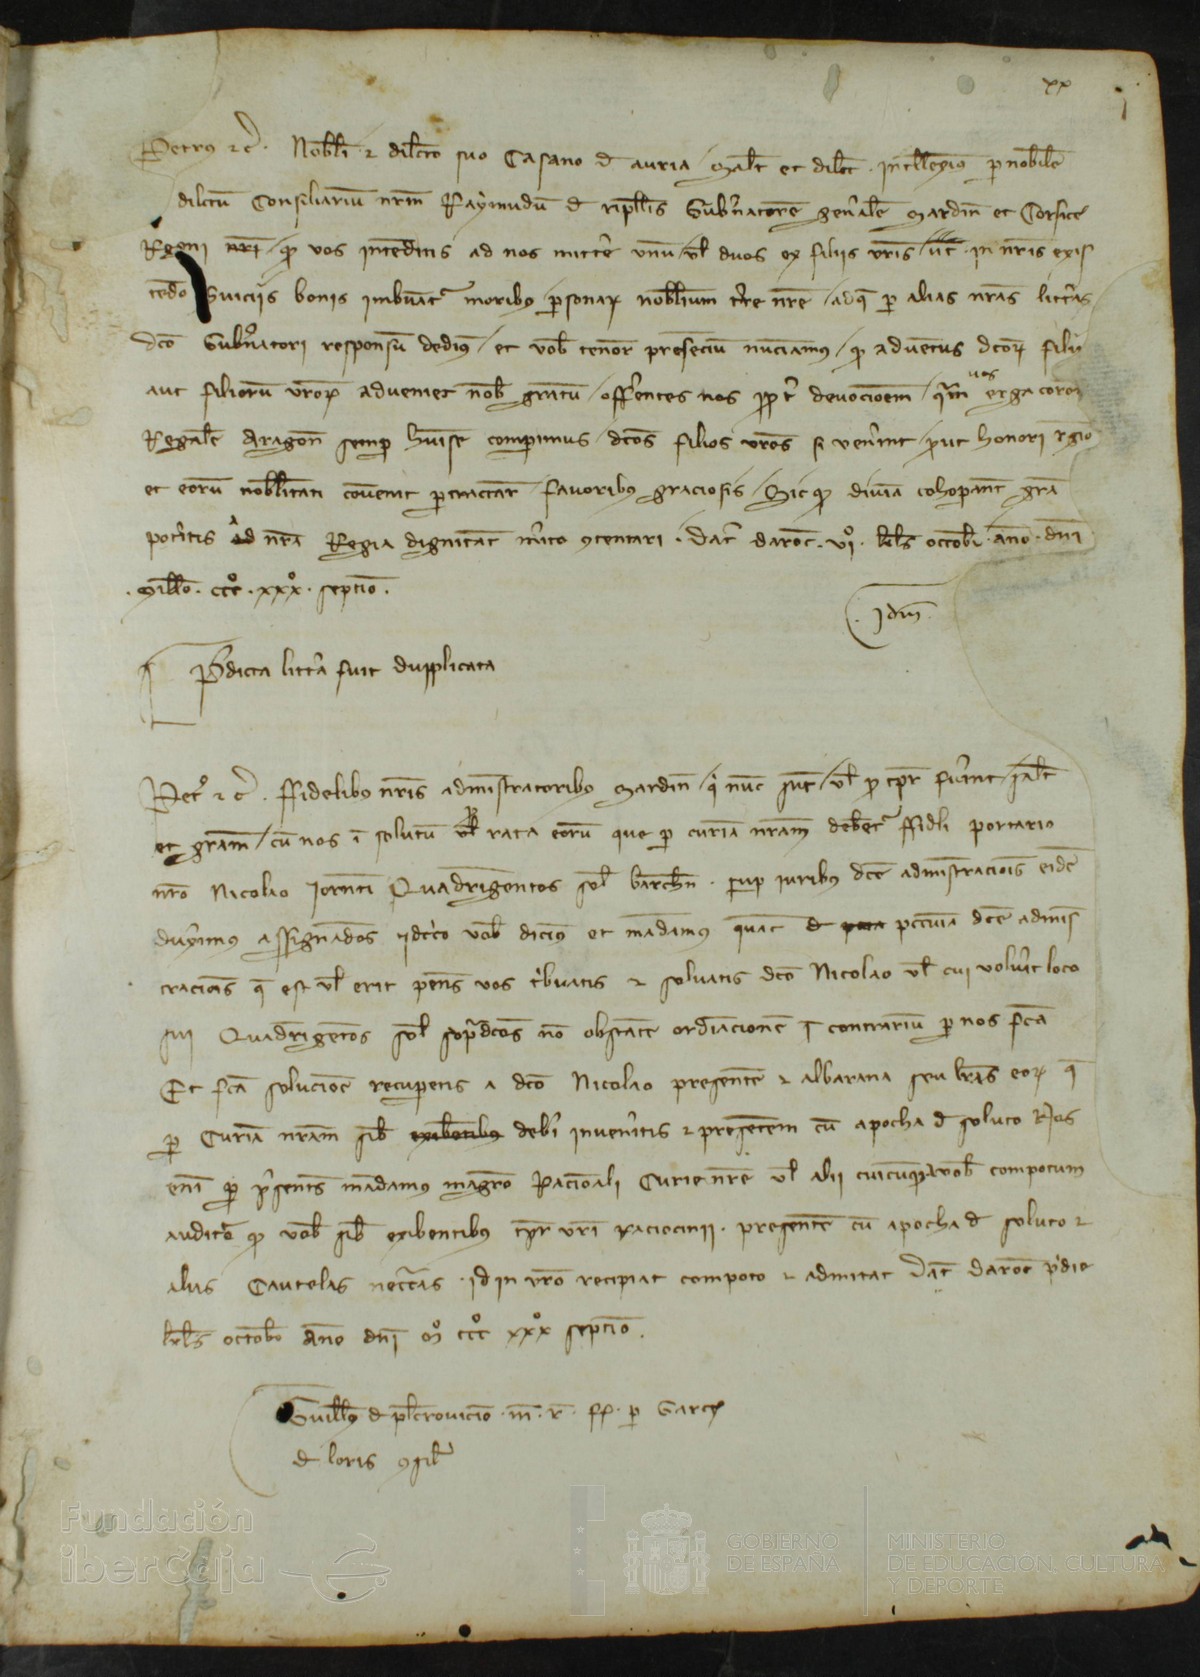 xx
Petrus etc. Nobili et dilecto suo Casano de auria salt et dilect. intelleximus per nobilem
dilectum Consiliarium nrm Raymundum de ripellis Gubernatorem generalem Sardin et Corsice
Regni nri quod vos intenditis ad nos mittere unum vel duos ex filiis vris ut in nris exis
tendo Serviciis bonis imbuantur moribus personarum nobilium terre nre adque per alias nras litteras
dco Gubernatori responsum dedimus et vobis tenore presencium nunciamus quod adventus dcorum filii
aut filiorum vrorum adveniet nobis gratum offerentes nos propter devocionem quam vos erga coronam
Regalem Aragon semper habuisse comperimus dcos filios vros si venerint prout honori regio
et eorum nobilitati convenit pertractare favoribus graciosis Sicque divina cohoperante gra
poteritis de nra Regia dignitate merito contentari. Dat daroc. vi. kls octobr. anno. dni
. Millo. ccc. xxx. septimo.
. Idem.
Predicta littera fuit dupplicata
Petrus etc. ffidelibus nris administratoribus Sardin qui nunc sunt vel pro tempore fuerint salt
et gram cum nos in solutum pro rata eorum que per curiam nram debentur ffideli portario
nro Nicolao Jorneti Quadringentos sol barchn. super iuribus dce administracionis eidem
duximus assignandos idcirco vobis dicimus et mandamus quatenus de peccunia dce adminis
tracionis que est vel erit penes vos tribuatis et solvatis dco Nicolao vel cui voluerit loco
sui Quadringentos sol supradcos non obstante ordinacione in contrarium per nos fca
Et fca solucione recuperetis a dco Nicolao presentem et albarana seu lras eorum que
per Curiam nram sibi deberi inveneritis et presentem cum apocha de soluto Nos
enim per presentes mandamus magistro Racionali Curie nre vel alii cuicumque a vobis compotum
audituro quod vobis sibi exibentibus tempore vri raciocinii. presentem cum apocha de soluto et
alias Cautelas necessarias id in vro recipiat compoto et admitat Dat daroc pridie
kls octobr anno dni M ccc xxx septimo.
Guillmus de plicrovicino. m. r. ff. per Garciam
de loris consil
Fundación
iberCaja
GOBIERNO
DE ESPAÑA
MINISTERIO
DE EDUCACIÓN, CULTURA
Y DEPORTE